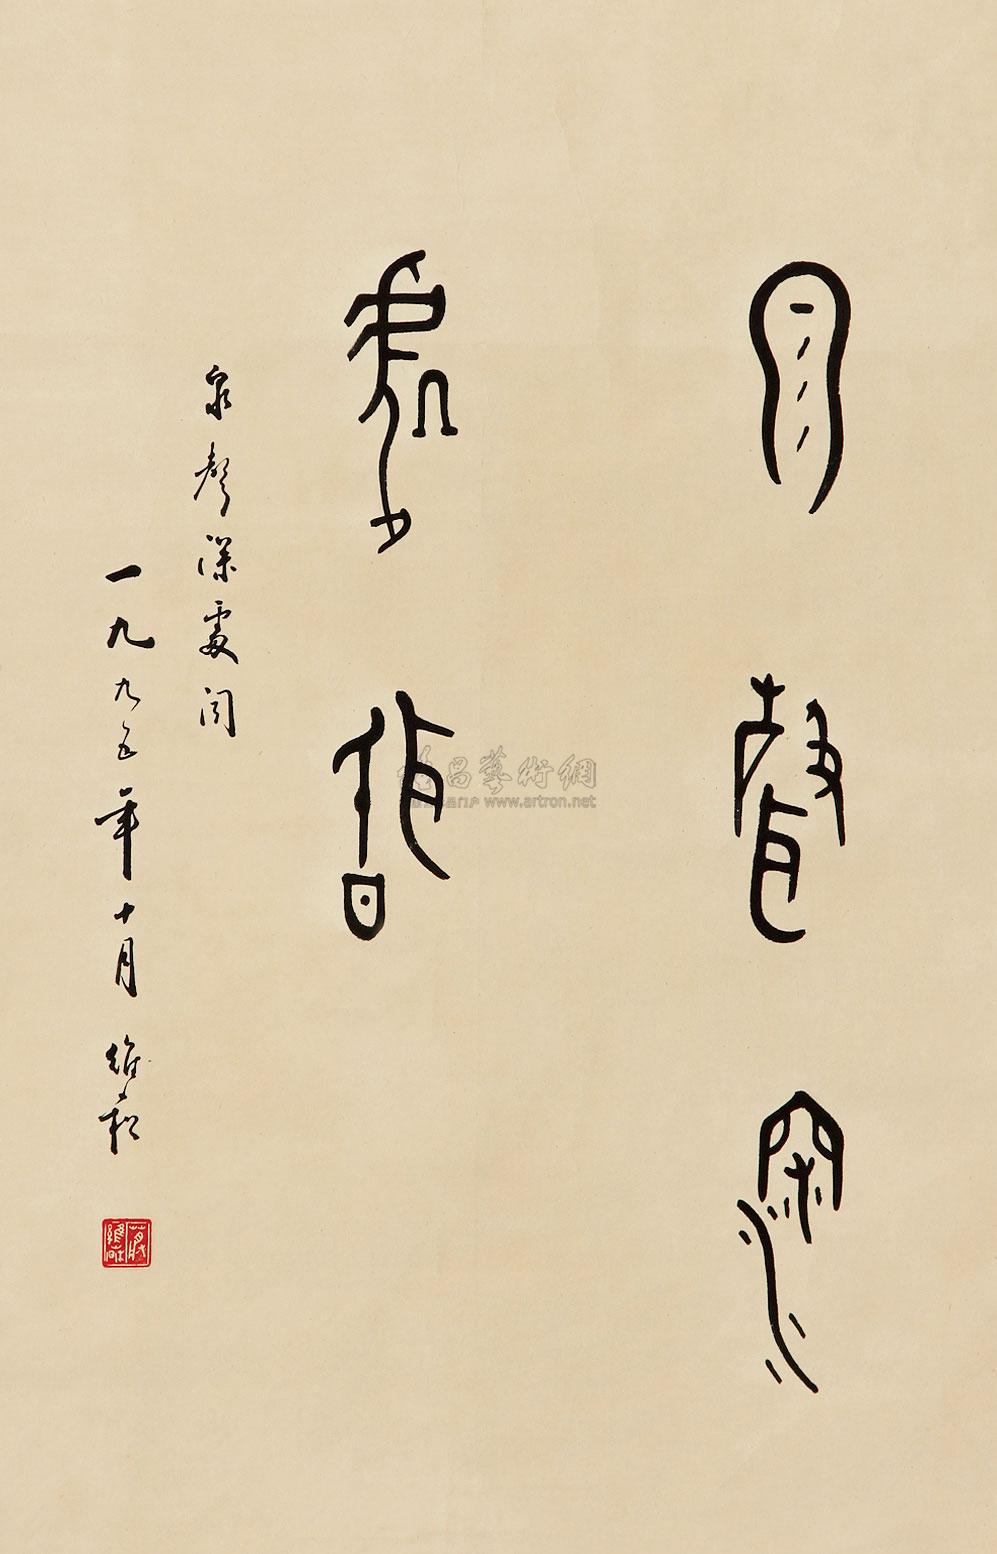 泉聲深
處聞
泉聲深處聞
一九九五年十月 維崧
蔣維崧
昌藝術網
www.artron.net